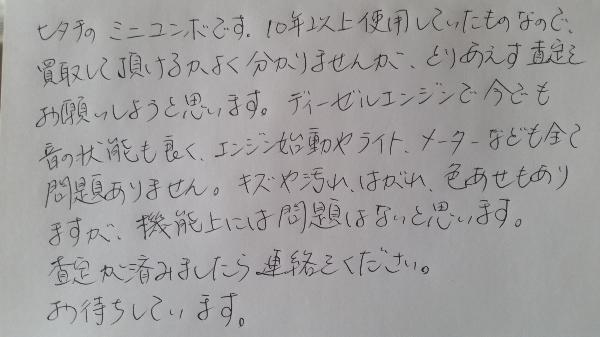 ヒタチのミニユンボです。10年以上使用していたものなので、
買取して頂けるかよく分かりませんが、とりあえず査定を
お願いしようと思います。ディーゼルエンジンで今でも
音の状態も良く、エンジン始動やライト、メーターなども全て
問題ありません。キズや汚れ、はがれ、色あせもあり
ますが、機能上には問題はないと思います。
査定が済みましたら連絡をください。
お待ちしています。